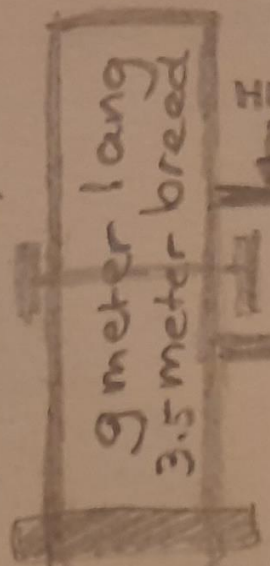 9 meter lang
3.5 meter breed